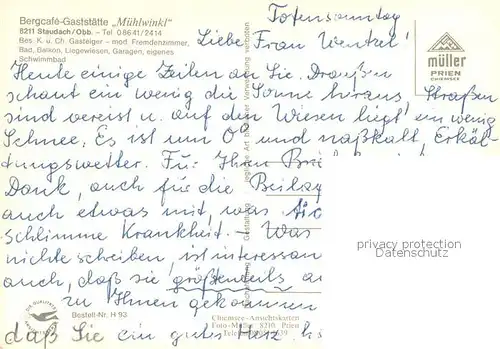 Bergcafé-Gaststätte „Mühlwinkl"
8211 Staudach/Obb. – Tel 0 86 41/2414
Bes. K. u. Ch. Gasteiger – mod. Fremdenzimmer,
Bad, Balkon, Liegewiesen, Garagen, eigenes
Schwimmbad
Totensonntag
Liebe Frau Wenkel!
müller
PRIEN
CHIEMSEE
Heute einige Zeilen an Sie. Draußen
schaut ein wenig die Sonne heraus, Straßen
sind vereist u. auf den Wiesen liegt ein wenig
Schnee. Es ist um 0° und naßkalt, Erkäl-
tungswetter. Für Ihren
Dank, auch für die Beilag
auch etwas mit, was
schlimme Krankheit – Was
nichte schreiben, ist interessan
auch, daß sie größtenteils an
zu Ihnen gekommen
daß Sie ein gutes Herz
privacy protection
Datenschutz
Bestell-Nr. H 93
Chiemsee-Ansichtskarten
Foto-Müller 8210 Prien
jegliche Art der Verwertung verboten
Gestaltung